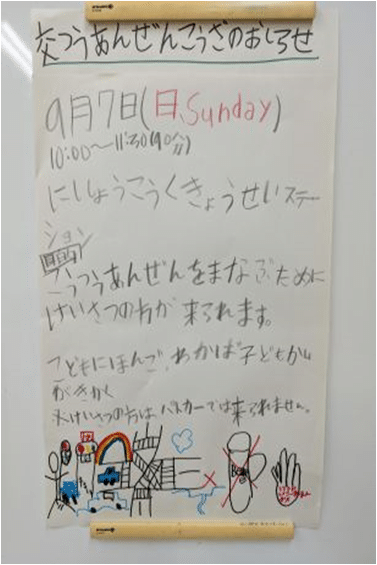 交つうあんぜんこうざのおしらせ
9月7日(日、Sunday)
10:00~11:30(90分)
にしょうこうくきょうせいステー
ション
こうつうあんぜんをまなぶために
けいさつの方が来られます。
こどもにほんご、わかば子どもかい
がきかく
※けいさつの方はパトカーでは来られません。